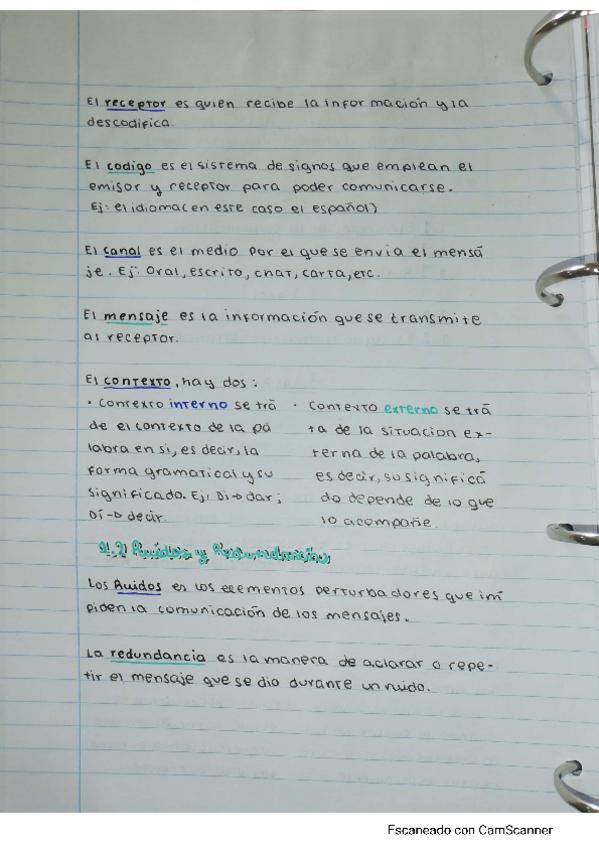 El receptor es quien recibe la información y la
descodifica.
El codigo es el sistema de signos que emplean el
emisor y receptor para poder comunicarse.
Ej: el idioma(en este caso el español)
El canal es el medio por el que se envia el mensa
je. Ej: Oral, escrito, chat, carta, etc.
El mensaje es la información que se transmite
al receptor.
El contexto, hay dos:
· Contexto interno se tra
de el contexto de la pa
labra en si, es decir, la
forma gramatical y su
significado. Ej: Di→dar;
Dí→decir.
· Contexto externo se tra
ta de la situacion ex-
terna de la palabra,
es decir, su significa
do depende de lo que
lo acompañe.
2.2 Ruidos y Redundancia
Los Ruidos en los elementos perturbadores que im
piden la comunicación de los mensajes.
La redundancia es la manera de aclarar o repe-
tir el mensaje que se dio durante un ruido.
Escaneado con CamScanner